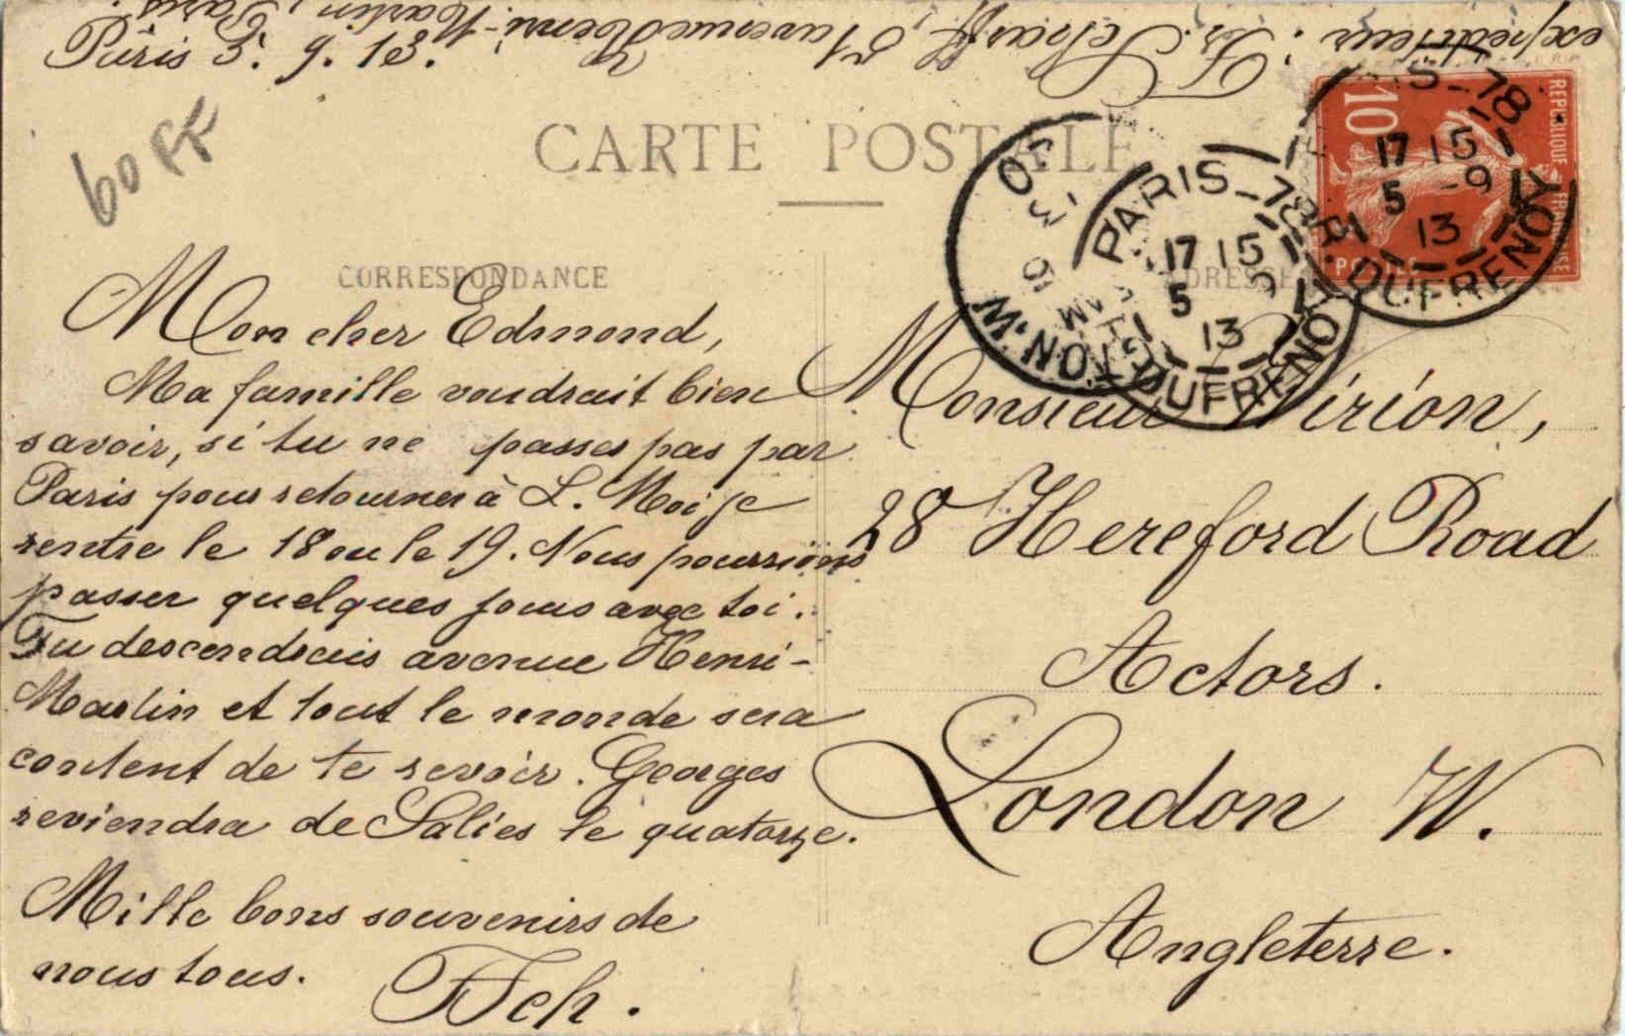 expéditeur: Fr. Scharff, 91 avenue Henri-Martin, Paris.
Paris 5.9.13.
60 FF
CARTE POSTALE
CORRESPONDANCE
ADRESSE
Mon cher Edmond,
Ma famille voudrait bien
savoir, si tu ne passes pas par
Paris pour retourner à L. Moi je
rentre le 18 ou le 19. Nous pourrions
passer quelques jours avec toi.
Tu descendrais avenue Henri-
Martin et tout le monde sera
content de te revoir. Georges
reviendra de Salies le quatorze.
Mille bons souvenirs de
nous tous.
FSch.
Monsieur Wirion,
28 Hereford Road
Actors.
London W.
Angleterre.
10
REPUBLIQUE FRANÇAISE
POSTES
PARIS-78
17 15
5 -9
13
R. DUFRENOY
PARIS-78
17 15
5 9
13
R. DUFRENOY
ACTON.W.